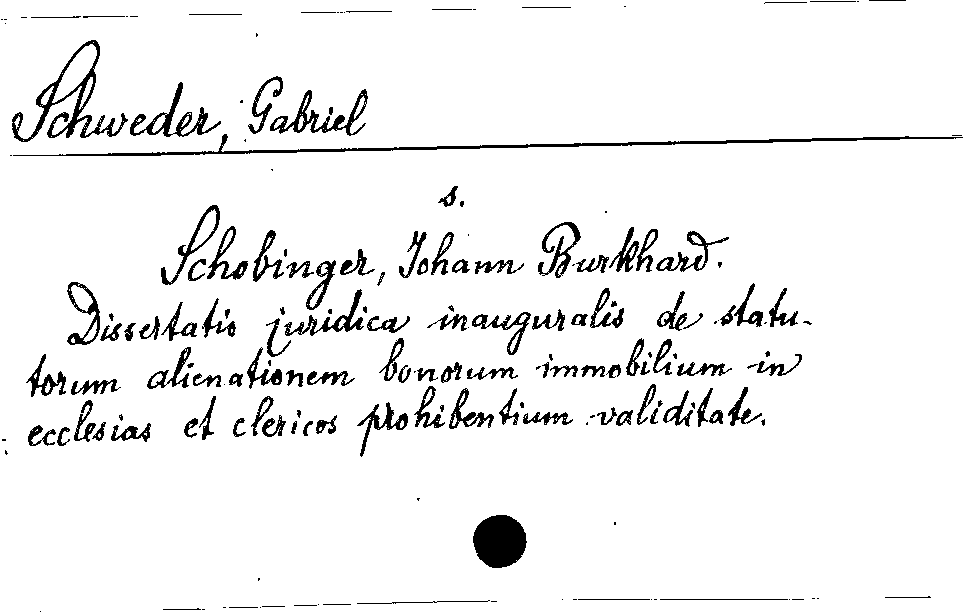 Schweder, Gabriel
s.
Schobinger, Johann Burkhard.
Dissertatio juridica inauguralis de statu-
torum alienationem bonorum immobilium in
ecclesias et clericos prohibentium validitate.